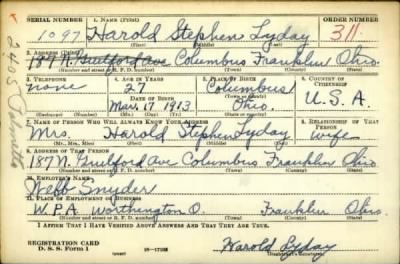 SERIAL NUMBER 1. NAME (PRINT) ORDER NUMBER
1097 Harold Stephen Lyday 311
(First) (Middle) (Last)
2. ADDRESS (PRINT)
187 N. Guilford ave Columbus Franklin Ohio.
(Number and street or R. F. D. number) (Town) (County) (State)
3. TELEPHONE 4. AGE IN YEARS 5. PLACE OF BIRTH 6. COUNTRY OF CITIZENSHIP
none 27 Columbus
DATE OF BIRTH
Mar. 17 1913 Ohio. U. S. A.
(Exchange) (No.) (Mo.) (Day) (Yr.) (State or country)
7. NAME OF PERSON WHO WILL ALWAYS KNOW YOUR ADDRESS 8. RELATIONSHIP OF THAT PERSON
Mrs. Harold Stephen Lyday wife
(Mr., Mrs., Miss) (First) (Middle) (Last)
9. ADDRESS OF THAT PERSON
187 N. Guilford Ave Columbus Franklin Ohio
(Number and street or R. F. D. number) (Town) (County) (State)
10. EMPLOYER'S NAME
Webb Snyder
11. PLACE OF EMPLOYMENT OR BUSINESS
W.P.A. Worthington O. Franklin Ohio.
(Number and street or R. F. D. number) (Town) (County) (State)
I AFFIRM THAT I HAVE VERIFIED ABOVE ANSWERS AND THAT THEY ARE TRUE.
REGISTRATION CARD
D. S. S. Form 1 (over) Harold Lyday
(Registrant's signature)